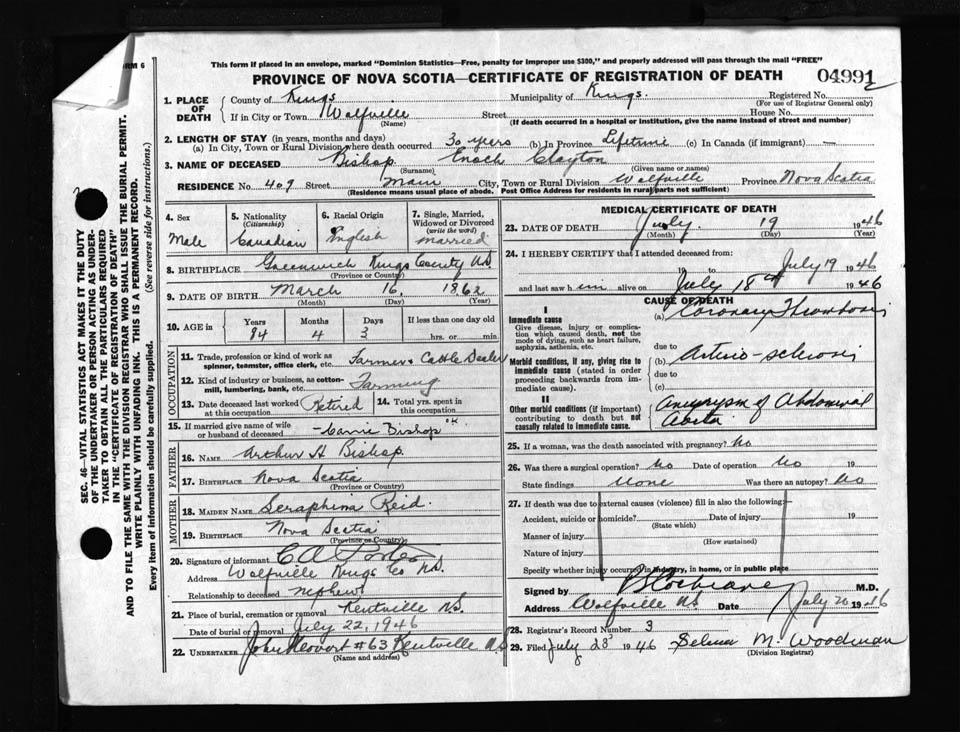 RM 6
This form if placed in an envelope, marked "Dominion Statistics—Free, penalty for improper use $300," and properly addressed will pass through the mail "FREE"
PROVINCE OF NOVA SCOTIA—CERTIFICATE OF REGISTRATION OF DEATH
04992
1. PLACE OF DEATH
County of Kings Municipality of Kings. Registered No.
(For use of Registrar General only)
If in City or Town Wolfville Street House No.
(Name) (If death occurred in a hospital or institution, give the name instead of street and number)
2. LENGTH OF STAY (in years, months and days)
(a) In City, Town or Rural Division where death occurred 30 years (b) In Province Lifetime (c) In Canada (if immigrant) —
3. NAME OF DECEASED Bishop Enoch Clayton
(Surname) (Given name or names)
RESIDENCE No. 409 Street Main City, Town or Rural Division Wolfville Province Nova Scotia
(Residence means usual place of abode. Post Office Address for residents in rural parts not sufficient)
4. Sex Male
5. Nationality (Citizenship) Canadian
6. Racial Origin English
7. Single, Married, Widowed or Divorced (write the word) married
8. BIRTHPLACE Greenwich Kings County N.S
(Province or Country)
9. DATE OF BIRTH March 16, 1862
(Month) (Day) (Year)
10. AGE in Years 84 Months 4 Days 3 If less than one day hrs. or min.
OCCUPATION
11. Trade, profession or kind of work as spinner, teamster, office clerk, etc. Farmer & Cattle Dealer
12. Kind of industry or business, as cotton-mill, lumbering, bank, etc. Farming
13. Date deceased last worked at this occupation Retired
14. Total yrs. spent in this occupation
15. If married give name of wife or husband of deceased - Carrie Bishop
FATHER
16. NAME Arthur H Bishop.
17. BIRTHPLACE Nova Scotia
(Province or Country)
MOTHER
18. MAIDEN NAME Seraphina Reid.
19. BIRTHPLACE Nova Scotia
(Province or Country)
20. Signature of informant
Address Wolfville Kings Co N.S.
Relationship to deceased nephew
21. Place of burial, cremation or removal Kentville N.S.
Date of burial or removal July 22, 1946
22. UNDERTAKER John #63 Kentville N.S
(Name and address)
MEDICAL CERTIFICATE OF DEATH
23. DATE OF DEATH July. 19 1946
(Month) (Day) (Year)
24. I HEREBY CERTIFY that I attended deceased from
19 to July 19 1946
and last saw him alive on July 18th 1946
CAUSE OF DEATH
I
Immediate cause
Give disease, injury or complication which caused death, not the mode of dying, such as heart failure, asphyxia, asthenia, etc.
(a) Coronary Thrombosis
due to
Morbid conditions, if any, giving rise to immediate cause (stated in order proceeding backwards from immediate cause).
(b) Arterio-sclerosis
due to
(c)
II
Other morbid conditions (if important) contributing to death but not causally related to immediate cause.
Aneurysm of Abdominal Aorta
25. If a woman, was the death associated with pregnancy? No
26. Was there a surgical operation? No Date of operation No 19
State findings None Was there an autopsy? No
27. If death was due to external causes (violence) fill in also the following:—
Accident, suicide or homicide? Date of injury 19
(State which)
Manner of injury
(How sustained)
Nature of injury
Specify whether injury occurred in industry, in home, or in public place
Signed by B S Cochrane M.D.
Address Wolfville NS Date July 20 1946
28. Registrar's Record Number 3
29. Filed July 23 1946 Selena M. Woodman
(Division Registrar)
SEC. 46—VITAL STATISTICS ACT MAKES IT THE DUTY
OF THE UNDERTAKER OR PERSON ACTING AS UNDER-
TAKER TO OBTAIN ALL THE PARTICULARS REQUIRED
IN THE "CERTIFICATE OF REGISTRATION OF DEATH"
AND TO FILE THE SAME WITH THE DIVISION REGISTRAR WHO SHALL ISSUE THE BURIAL PERMIT.
WRITE PLAINLY WITH UNFADING INK. THIS IS A PERMANENT RECORD.
Every item of information should be carefully supplied. (See reverse side for instructions.)